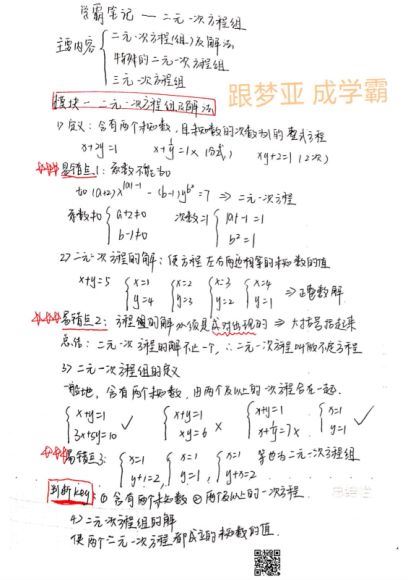 学霸笔记 — 二元一次方程组
主要内容 { 二元一次方程(组)及解法
特殊的二元一次方程组
三元一次方程组
跟梦亚 成学霸
模块一 二元一次方程组及解法
1> 定义：含有两个未知数，且未知数的次数为1的整式方程
x+2y=1 x+1/y=1× (分式) xy+2=1 (2次)
易错点1：系数不能为0
如 (a+2)x^|a|-1 - (b-1)y^b²=7 ⇒ 二元一次方程
系数≠0 { a+2≠0 次数=1 { |a|-1=1
b-1≠0 b²=1
2> 二元一次方程的解：使方程左右两边相等的未知数的值
x+y=5 { x=1 { x=2 { x=3 { x=4 ⇒ 正整数解
y=4 y=3 y=2 y=1
易错点2：方程组的解必须是成对出现的 ⇒ 大括号括起来
总结：二元一次方程的解不止一个，∴二元一次方程叫做不定方程
3> 二元一次方程组的定义
一般地，含有两个未知数，由两个及以上的一次方程合在一起.
{ x+y=1 ✓ { x+y=1 × { x+y=1 { x=1 ✓
3x+5y=10 xy=6 x+1/y=7 × y=1
易错点3： { x=1 { x=1 { x=1 等也为二元一次方程组
y+1=2, y=1, y+x=2
判断key：① 含有两个未知数 ② 两个及以上的一次方程
4> 二元一次方程组的解
使两个二元一次方程都成立的未知数的值.